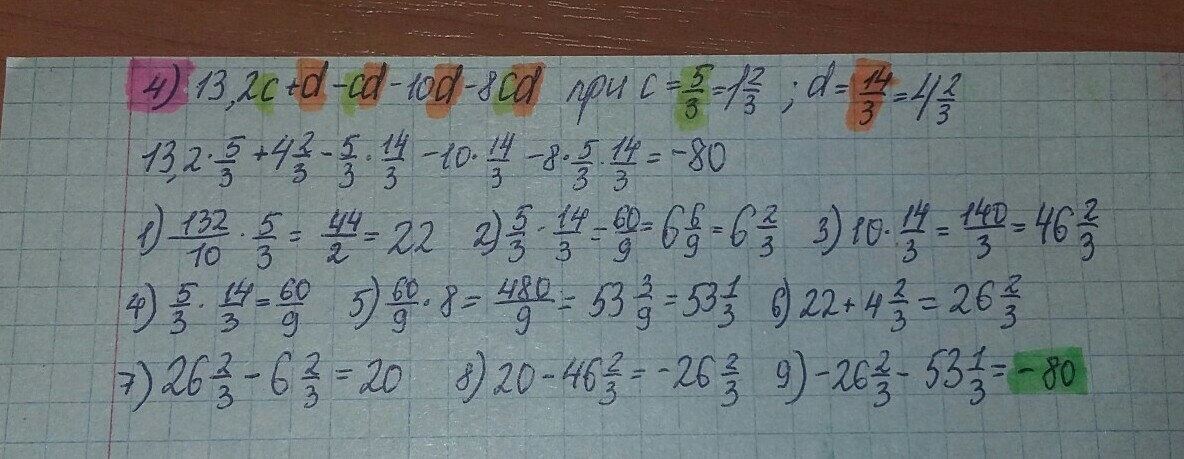 4) 13,2c + d - cd - 10d - 8cd при c = 5/3 = 1 2/3 ; d = 14/3 = 4 2/3
13,2 · 5/3 + 4 2/3 - 5/3 · 14/3 - 10 · 14/3 - 8 · 5/3 · 14/3 = -80
1) 132/10 · 5/3 = 44/2 = 22 2) 5/3 · 14/3 = 60/9 = 6 6/9 = 6 2/3 3) 10 · 14/3 = 140/3 = 46 2/3
4) 5/3 · 14/3 = 60/9 5) 60/9 · 8 = 480/9 = 53 3/9 = 53 1/3 6) 22 + 4 2/3 = 26 2/3
7) 26 2/3 - 6 2/3 = 20 8) 20 - 46 2/3 = -26 2/3 9) -26 2/3 - 53 1/3 = -80